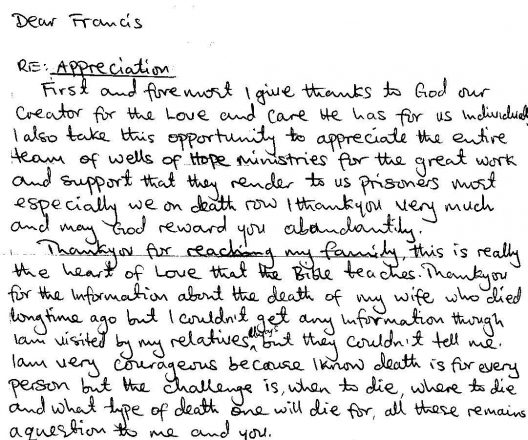 Dear Francis
RE: Appreciation
First and foremost I give thanks to God our
Creator for the Love and Care He has for us individual
I also take this opportunity to appreciate the entire
team of wells of Hope ministries for the great work
and support that they render to us prisoners most
especially we on death row I thankyou very much
and may God reward you abundantily.
Thankyou for reaching my family, this is really
the heart of Love that the Bible teaches. Thankyou
for the Information about the death of my wife who died
longtime ago but I couldn't get any information though
Iam visited by my relatives always but they couldn't tell me.
Iam very courageous because I know death is for every
person but the challenge is, when to die, where to die
and what type of death one will die for, all these remains
a question to me and you.